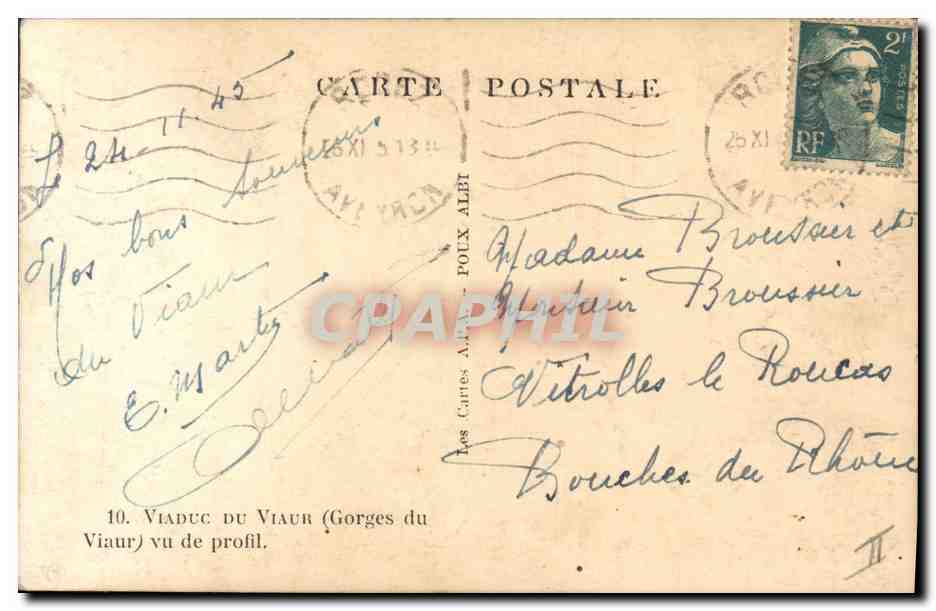 CARTE POSTALE
2F
POSTES
RF
AVEYRON
AVEYRON
Le 24-11-45
Nos bons Souvenirs
du Viaur
E. Marty
Madame Broussier et
Monsieur Broussier
Vitrolles le Roucas
Bouches du Rhône
Les Cartes A.P.A. - POUX ALBI
CPAPHIL
10. VIADUC DU VIAUR (Gorges du
Viaur) vu de profil.
II